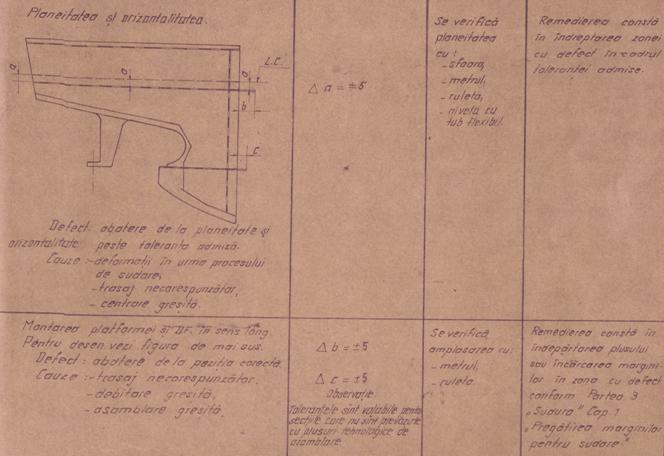 Planeitatea și orizontalitatea.
a
a
a
L.C.
b
c
Defect: abatere de la planeitate și
orizontalitate peste toleranța admisă.
Cauze :- deformații în urma procesului
de sudare,
- trasaj necorespunzător,
- centrare greșită.
Δ a = ±5
Se verifică
planeitatea
cu :
- sfoara,
- metrul,
- ruleta,
- nivelă cu
tub flexibil.
Remedierea constă
în îndreptarea zonei
cu defect în cadrul
toleranței admise.
Montarea platformei și D.F. în sens long.
Pentru desen vezi figura de mai sus.
Defect : abatere de la poziția corectă.
Cauze :- trasaj necorespunzător.
- debitare greșită,
- asamblare greșită
Δ b = ±5
Δ c = ±5
Observație.
Toleranțele sînt valabile pentru
secțiile care nu sînt prevăzute
cu plusuri tehnologice de
asamblare.
Se verifică
amplasarea cu:
- metrul,
- ruleta.
Remedierea constă în
îndepărtarea plusului
sau încărcarea margini-
lor în zona cu defect
conform Partea 3
„Sudura" Cap. 1
„Pregătirea marginilor
pentru sudare."